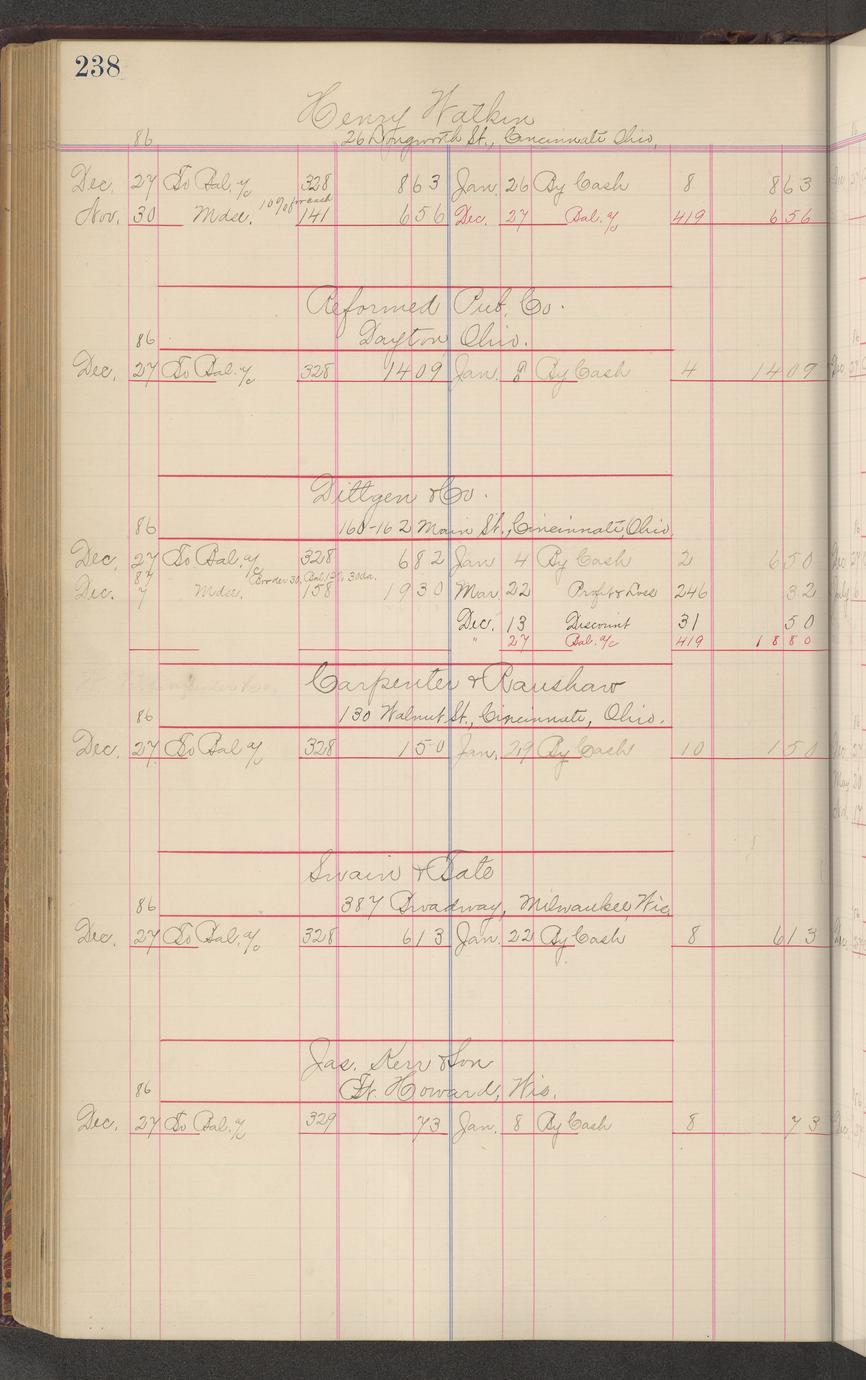 238
Henry Watkin
86 26 Longworth St., Cincinnati Ohio,
Dec. 27 To Bal. a/c 328 863 Jan. 26 By Cash 8 863
Nov. 30 Mdse. 10% for cash 141 656 Dec. 27 Bal. a/c 419 656
Reformed Pub. Co.
86 Dayton, Ohio.
Dec. 27 To Bal. a/c 328 1409 Jan. 8 By Cash 4 1409
Dittgen & Co.
86 160-162 Main St., Cincinnati, Ohio
Dec. 27 To Bal. a/c 328 682 Jan 4 By Cash 2 650
87 30, Bal. 30da.
Dec. 7 Mdse. 158 1930 Mar. 22 Profit & Loss 246 32
Dec. 13 Discount 31 50
" 27 Bal. a/c 419 1880
Carpenter & Ranshaw
86 130 Walnut St., Cincinnati, Ohio.
Dec. 27 To Bal a/c 328 150 Jan. 29 By Cash 10 150
Swain & Tate
86 387 Broadway, Milwaukee, Wis.
Dec. 27 To Bal. a/c 328 613 Jan. 22 By Cash 8 613
Jas. Kerr & Son
86 Ft. Howard, Wis.
Dec. 27 To Bal. a/c 329 73 Jan. 8 By Cash 8 73